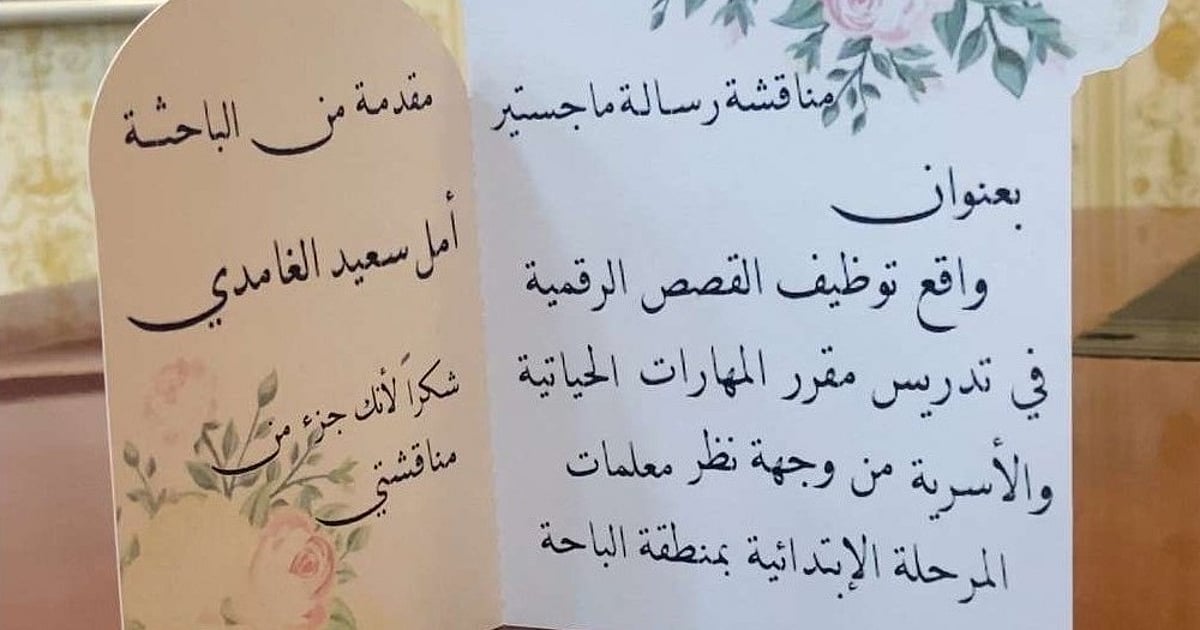 مناقشة رسالة ماجستير
بعنوان
واقع توظيف القصص الرقمية
في تدريس مقرر المهارات الحياتية
والأسرية من وجهة نظر معلمات
المرحلة الإبتدائية بمنطقة الباحة
مقدمة من الباحثة
أمل سعيد الغامدي
شكراً لأنك جزء من
مناقشتي